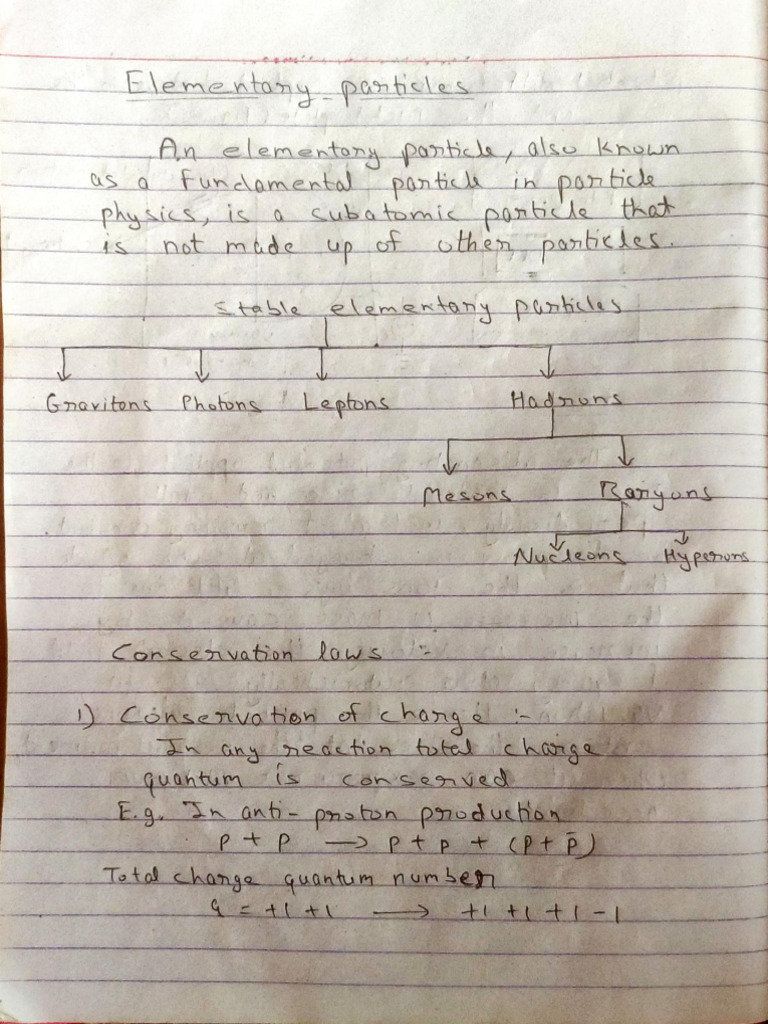 Elementary particles
An elementary particle, also known
as a fundamental particle in particle
physics, is a subatomic particle that
is not made up of other particles.
stable elementary particles
Gravitons Photons Leptons Hadrons
Mesons Baryons
Nucleons Hyperons
Conservation laws :-
1) Conservation of charge :-
In any reaction total charge
quantum is conserved
E.g. In anti-proton production
p + p → p + p + (p + p̄)
Total charge quantum number
q = +1 +1 → +1 +1 +1 -1